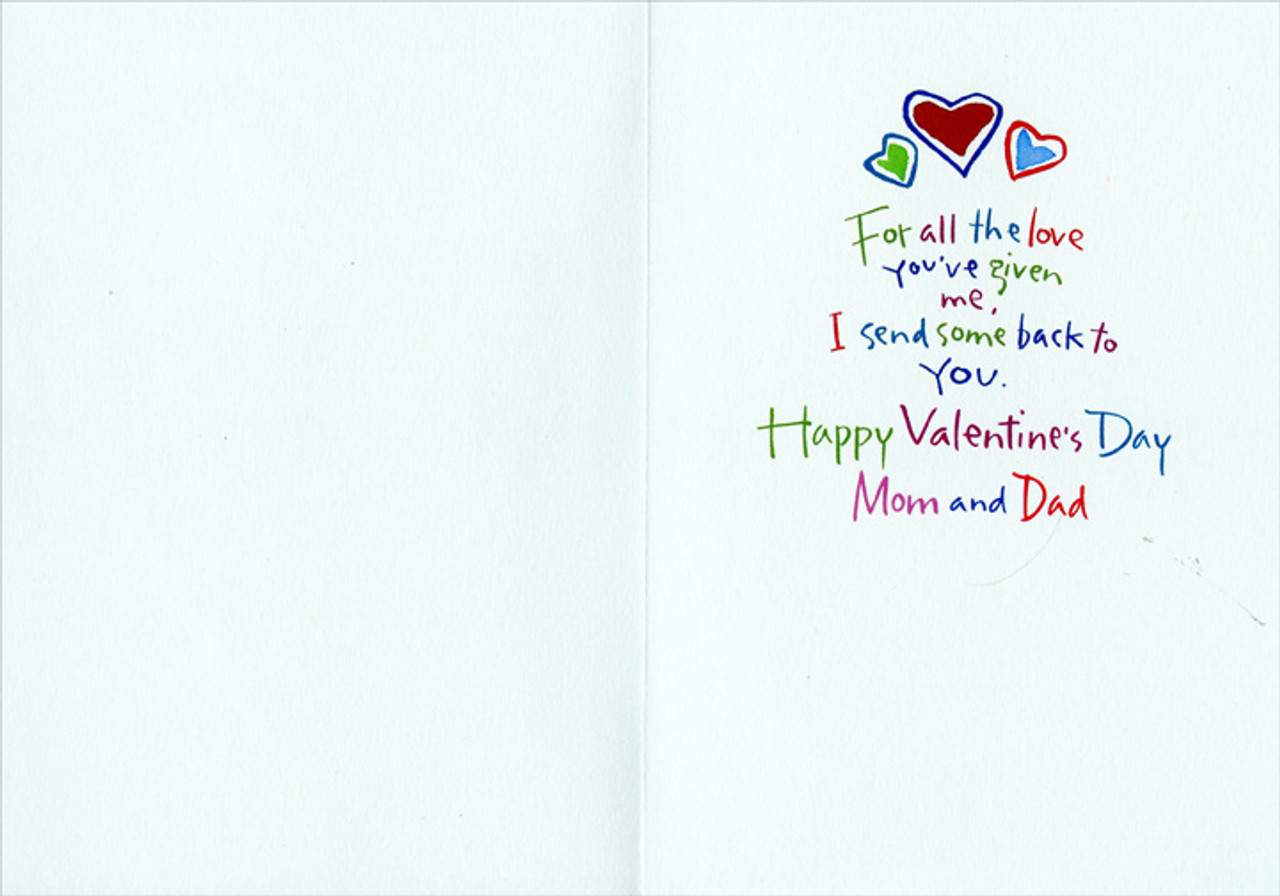 For all the love
you've given
me,
I send some back to
you.
Happy Valentine's Day
Mom and Dad